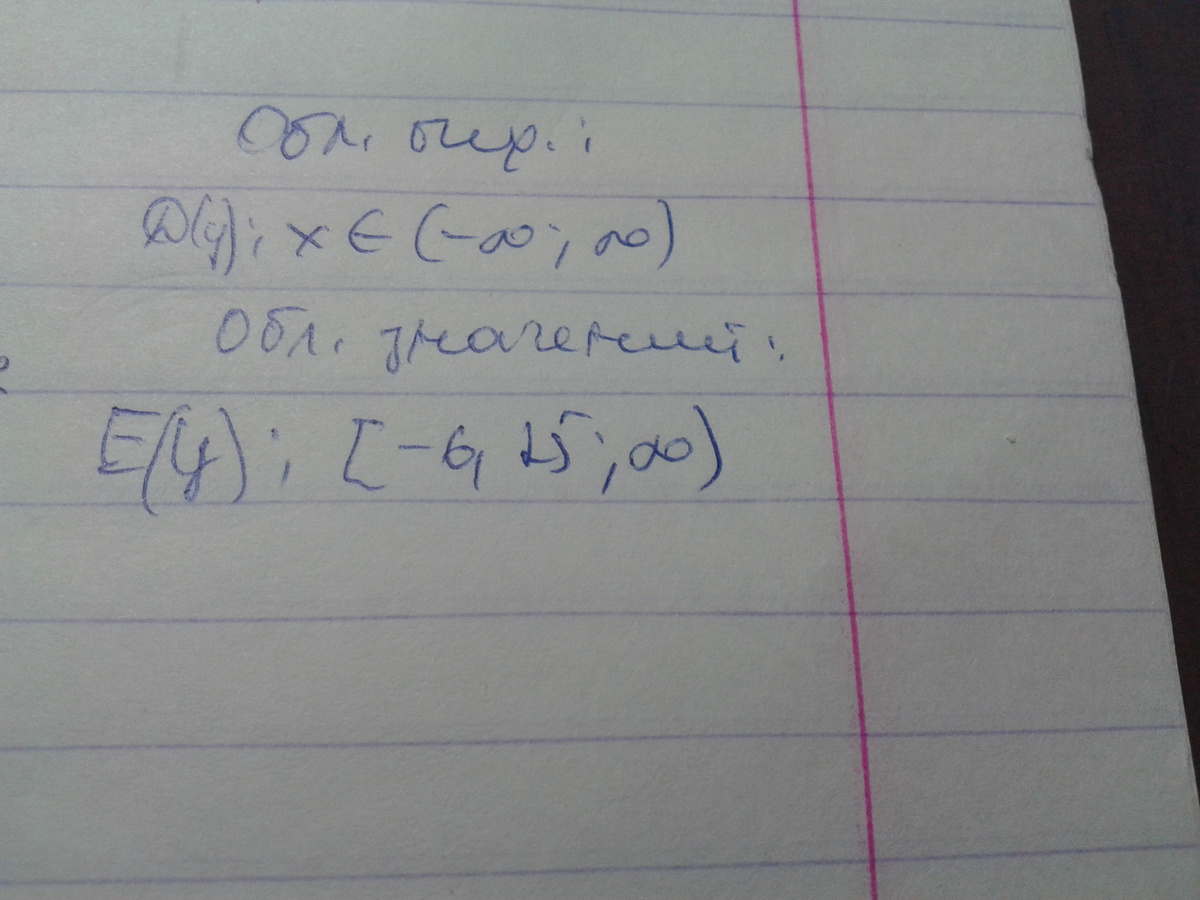 Обл. опр.:
D(y); x ∈ (-∞; ∞)
Обл. значений:
E(y); [-6,25; ∞)